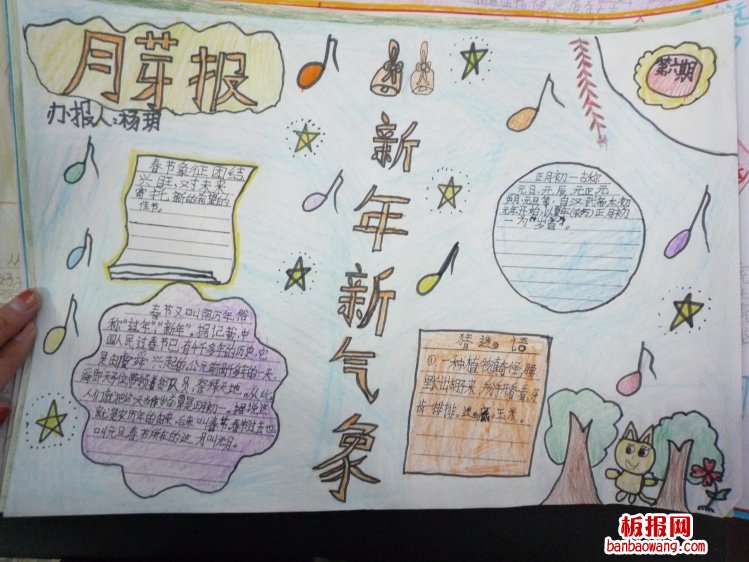 月芽报
办报人：杨
第六期
新年新气象
春节象征团结
兴旺，对未来
寄托新的希望的
佳节。
正月初一古称
元日、元辰、元正、元
朔、元旦等，自汉武帝太初
元年开始，以夏年（农历）正月初
一为“岁首”。
春节又叫阴历年，俗
称“过年”“新年”。据记载，中
国人民过春节已有4千多年的历史，它
是由虞舜兴起的。公元前两千多年的一天，
舜即天子位，带领着部下人员，祭拜天地。从此，
人们就把这天当作岁首，算是正月初一。据说这
就是农历新年的由来，后来叫春节。春节过去也
叫元旦。春节所在的这一月叫元月。
猜谜语
①一种植物真奇怪，腰
里长出胡子来，
齿一排排。谜底：玉米。
板报网
banbaowang.com